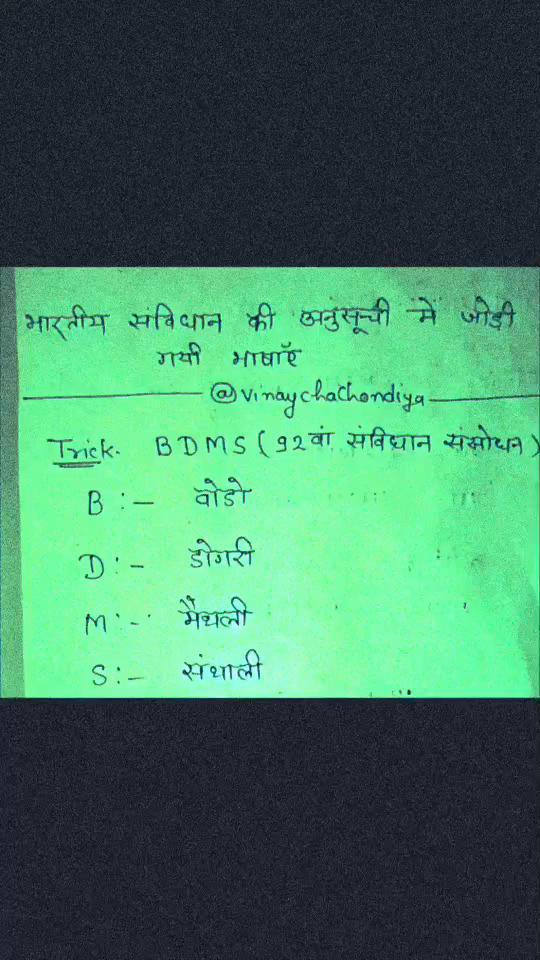 भारतीय संविधान की अनुसूची में जोडी
गयी भाषाएँ
@vinaychachondiya
Trick. BDMS (92वां संविधान संसोधन)
B :- वोडो
D :- डोगरी
M :- मैथली
S :- संथाली